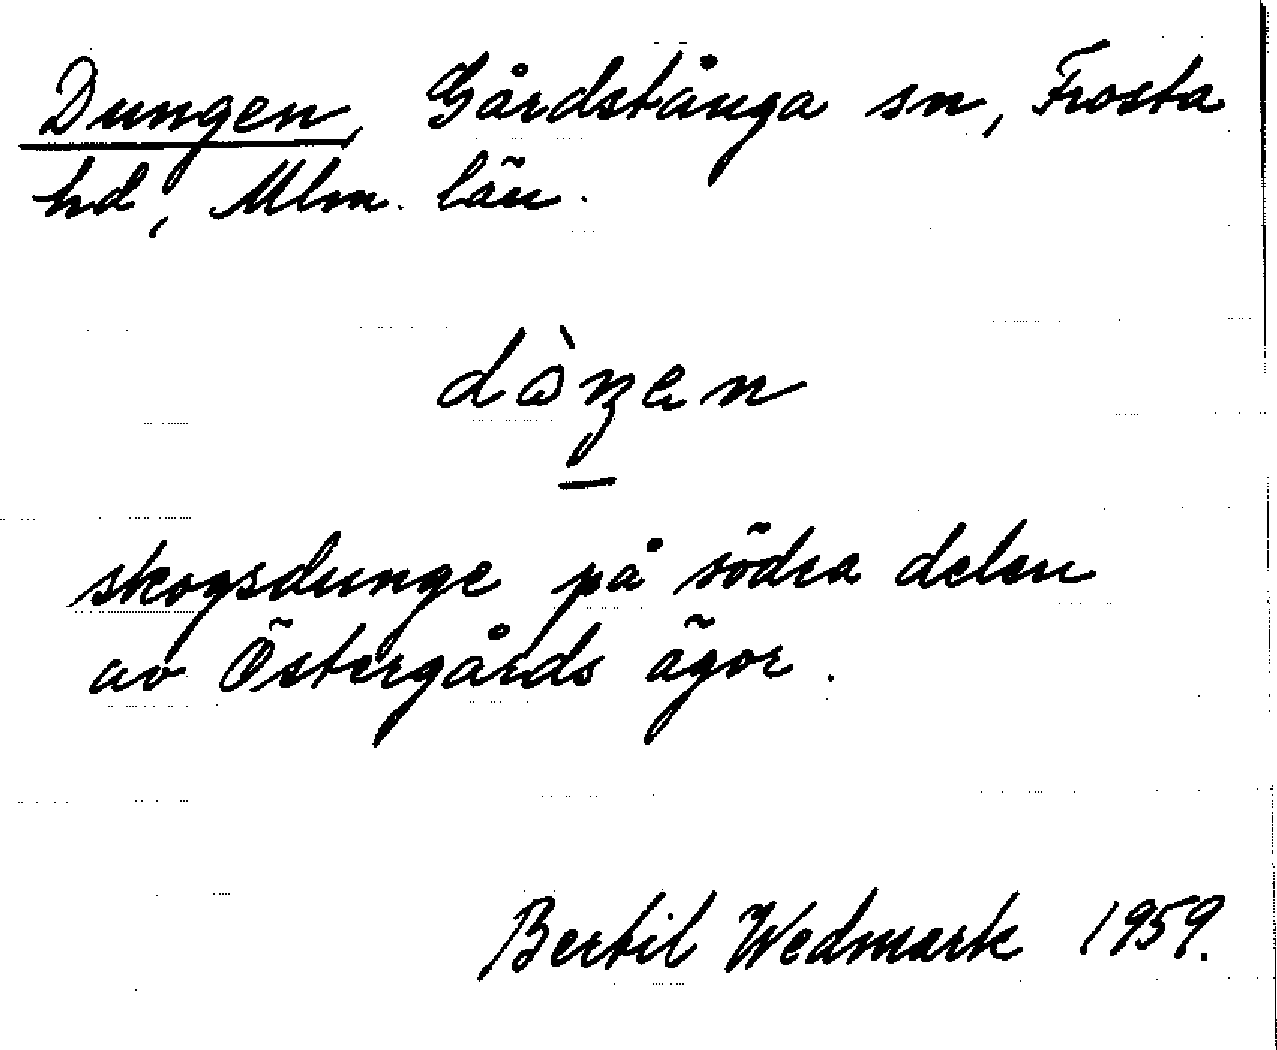 Dungen, Gårdstånga sn, Frosta
hd, Mlm. län.
skogsdunge på södra delen
av Östergårds ägor.
Bertil Wedmark 1959.